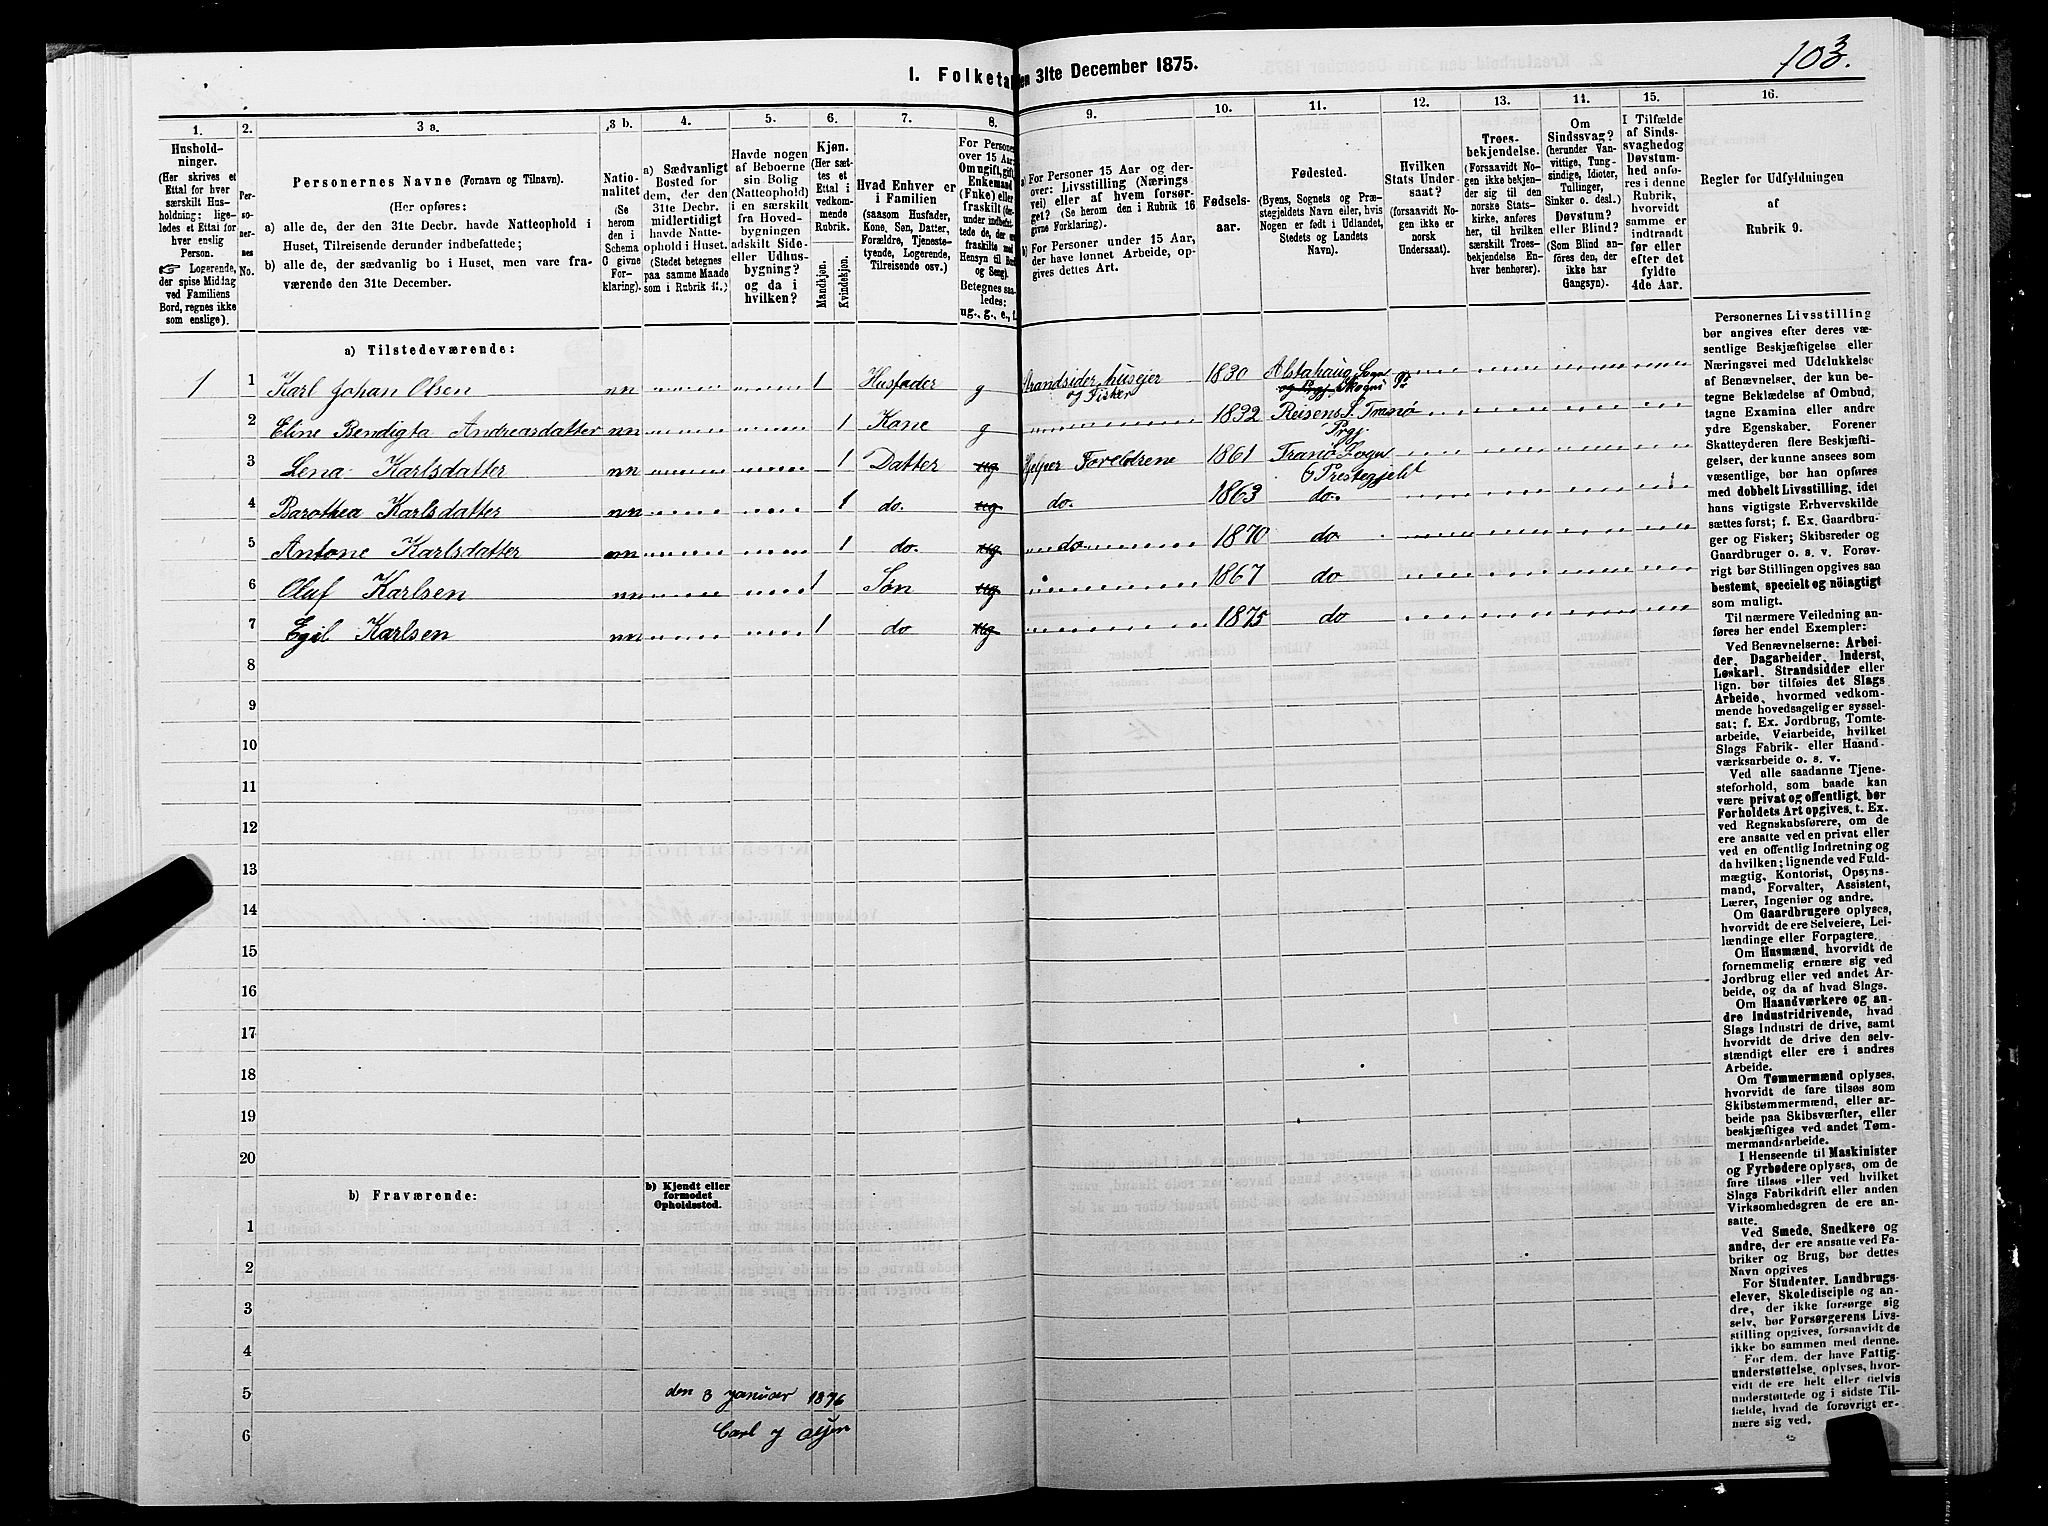 103.
I. Folketa en 31te December 1875.
1. 2. 3 a. 3 b. 4. 5. 6. 7. 8. 9. 10. 11. 12. 13. 14. 15. 16.
Hushold-
ninger.
(Her skrives et
Ettal for hver
særskilt Hus-
holdning: lige-
ledes et Ettal for
hver enslig
Person.
☞ Logerende,
der spise Middag
ved Familiens
Bord, regnes ikke
som enslige).
Per-
so-
ner-
nes
No.
Personernes Navne (Fornavn og Tilnavn).
(Her opføres:
a) alle de, der den 31te Decbr. havde Natteophold i
Huset, Tilreisende derunder indbefattede;
b) alle de, der sædvanlig bo i Huset, men vare fra-
værende den 31te December.
Natio-
nalitet
(Se
herom
den i
Schema
G givne
For-
klaring).
a) Sædvanligt
Bosted for
dem, der den
31te Decbr.
midlertidigt
havde Natte-
ophold i Huset.
(Stedet betegnes
paa samme Maade
som i Rubrik 11.)
Havde nogen
af Beboerne
sin Bolig
(Natteophold)
i en særskilt
fra Hoved-
bygningen
adskilt Side-
eller Udhus-
bygning?
og da i
hvilken?
Kjøn.
(Her sæt-
tes et
Ettal i
vedkom-
mende
Rubrik.
Mandkjøn.
Kvindekjøn.
Hvad Enhver er
i Familien
(saasom Husfader,
Kone, Søn, Datter,
Forældre, Tjeneste-
tyende, Logerende,
Tilreisende osv.)
For Personer
over 15 Aar:
Om ugift, gift,
Enkemand
(Enke) eller
fraskilt (der-
under indbefat-
tede de, der ere
fraskilte med
Hensyn til Bord
og Seng)
Betegnes saa-
ledes:
ug., g., e., f.
a) For Personer 15 Aar og der-
over: Livsstilling (Nærings-
vei) eller af hvem forsør-
get? (Se herom den i Rubrik 16
givne Forklaring).
b) For Personer under 15 Aar,
der have lønnet Arbeide, op-
gives dettes Art.
Fødsels-
aar.
Fødested.
(Byens, Sognets og Præ-
stegjeldets Navn eller, hvis
Nogen er født i Udlandet,
Stedets og Landets
Navn).
Hvilken
Stats Under-
saat?
(forsaavidt No-
gen ikke er
norsk
Undersaat).
Troes-
bekjendelse.
(Forsaavidt No-
gen ikke bekjen-
der sig til den
norske Stats-
kirke, anføres
her, til hvilken
særskilt Troes-
bekjendelse En-
hver henhører).
Om
Sindssvag?
(herunder Van-
vittige, Tung-
sindige, Idioter,
Tullinger,
Sinker o. desl.)
Døvstum?
eller Blind?
(Som Blind an-
føres den, der
ikke har
Gangsyn).
I Tilfælde
af Sinds-
svaghed og
Døvstum-
hed anfø-
res i denne
Rubrik,
hvorvidt
samme er
indtraadt
før eller
efter det
fyldte
4de Aar.
Regler for Udfyldningen
af
Rubrik 9.
a) Tilstedeværende:
1 1 Karl Johan Olsen nn 1 Husfader g Strandsider, huseier og Fisker 1830 Alstahaug Sogn og Prgj. Skogns Pr
2 Eline Bendigta Andreasdatter nn 1 Kone g 1832 Reisens S. Tranø Prgj.
3 Lena Karlsdatter nn 1 Datter ug Hjelper Forældrene 1861 Tranø Sogn Prestegjeld
4 Barothea Karlsdatter nn 1 do. ug do. 1863 do.
5 Antone Karlsdatter nn 1 do. ug do 1870 do
6 Oluf Karlsen nn 1 Søn ug 1867 do
7 Egil Karlsen nn 1 do ug 1875 do
8
9
10
11
12
13
14
15
16
17
18
19
20
b) Fraværende:
b) Kjendt eller
formodet
Opholdssted.
1
2
3
4
5
6
den 3 januar 1876
Carl J Olsen
Personernes Livsstilling
bør angives efter deres væ-
sentlige Beskjæftigelse eller
Næringsvei med Udelukkelse
af Benævnelser, der kun be-
tegne Beklædelse af Ombud,
tagne Examina eller andre
ydre Egenskaber. Forener
Skatteyderen flere Beskjæfti-
gelser, der kunne ansees som
væsentlige, bør han opføres
med dobbelt Livsstilling, idet
hans vigtigste Erhvervskilde
sættes først; f. Ex. Gaardbru-
ger og Fisker; Skibsreder og
Gaardbruger o. s. v. Forøv-
rigt bør Stillingen opgives saa
bestemt, specielt og nöiagtigt
som muligt.
Til nærmere Veiledning an-
føres her endel Exempler:
Ved Benævnelserne: Arbei-
der, Dagarbeider, Inderst,
Løskarl, Strandsidder eller
lign. bør tilføies det Slags
Arbeide, hvormed vedkom-
mende hovedsagelig er syssel-
sat; f. Ex. Jordbrug, Tomte-
arbeide, Veiarbeide, hvilket
Slags Fabrik- eller Haand-
værksarbeide o. s. v.
Ved alle saadanne Tjene-
steforhold, som baade kan
være privat og offentligt, bør
Forholdets Art opgives, t. Ex.
ved Regnskabsførere, om de
ere ansatte ved en privat eller
ved en offentlig Indretning og
da hvilken; lignende ved Fuld-
mægtig, Kontorist, Opsyns-
mand, Forvalter, Assistent,
Lærer, Ingeniør og andre.
Om Gaardbrugere oplyses,
hvorvidt de ere Selveiere, Lei-
lændinge eller Forpagtere.
Om Husmænd, hvorvidt de
fornemmelig ernære sig ved
Jordbrug eller ved andet Ar-
beide, og da af hvad Slags.
Om Haandværkere og an-
dre Industridrivende, hvad
Slags Industri de drive, samt
hvorvidt de drive den selv-
stændigt eller ere i andres
Arbeide.
Om Tømmermænd oplyses,
hvorvidt de fare tilsøs som
Skibstømmermænd, eller ar-
beide paa Skibsværfter, eller
beskjæftiges ved andet Tøm-
mermandsarbeide.
I Henseende til Maskinister
og Fyrbødere oplyses, om de
fare tilsøs eller ved hvilket
Slags Fabrikdrift eller anden
Virksomhedsgren de ere an-
satte.
Ved Smede, Snedkere og
andre, der ere ansatte ved Fa-
briker og Brug, bør dettes
Navn opgives
For Studenter, Landbrugs-
elever, Skoledisciple og an-
dre, der ikke forsørge sig
selv, bør Forsørgerens Livs-
stilling opgives, forsaavidt de
ikke bo sammen med denne.
For dem, der have Fattig-
understøttelse, oplyses, hvor-
vidt de ere helt eller delvis
understøttede og i sidste Til-
fælde, hvad de forøvrigt er-
nære sig ved.